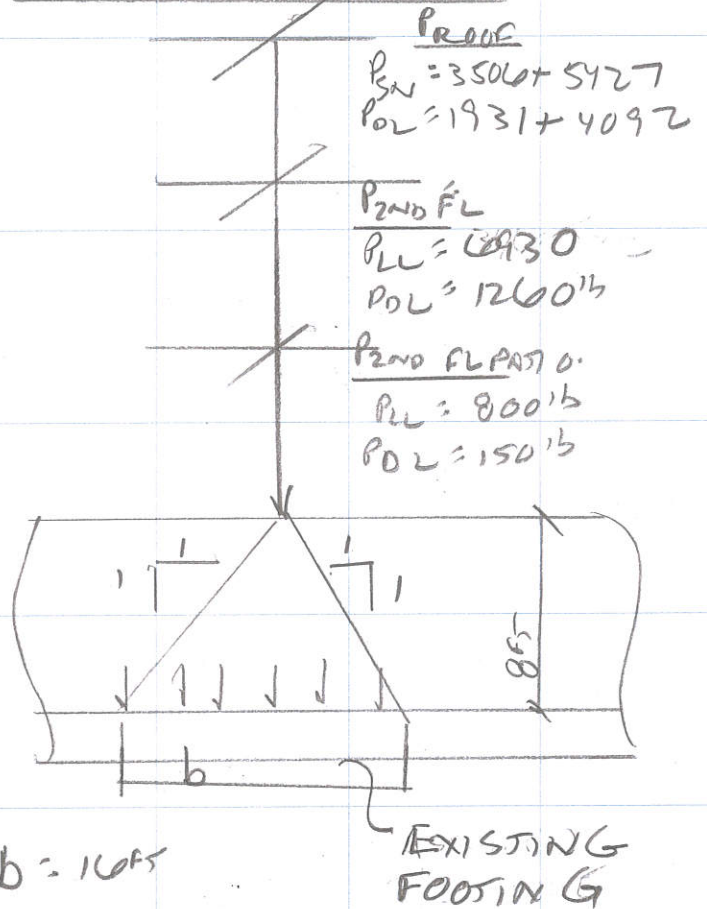 PROOF
PSN = 3506 + 5427
PDL = 1931 + 4092
P2ND FL
PLL = 6930
PDL = 1260 lb
P2ND FL PATIO.
PLL = 800 lb
PDL = 150 lb
1
1
1
1
8 FT
b
b = 16 FT
EXISTING
FOOTING